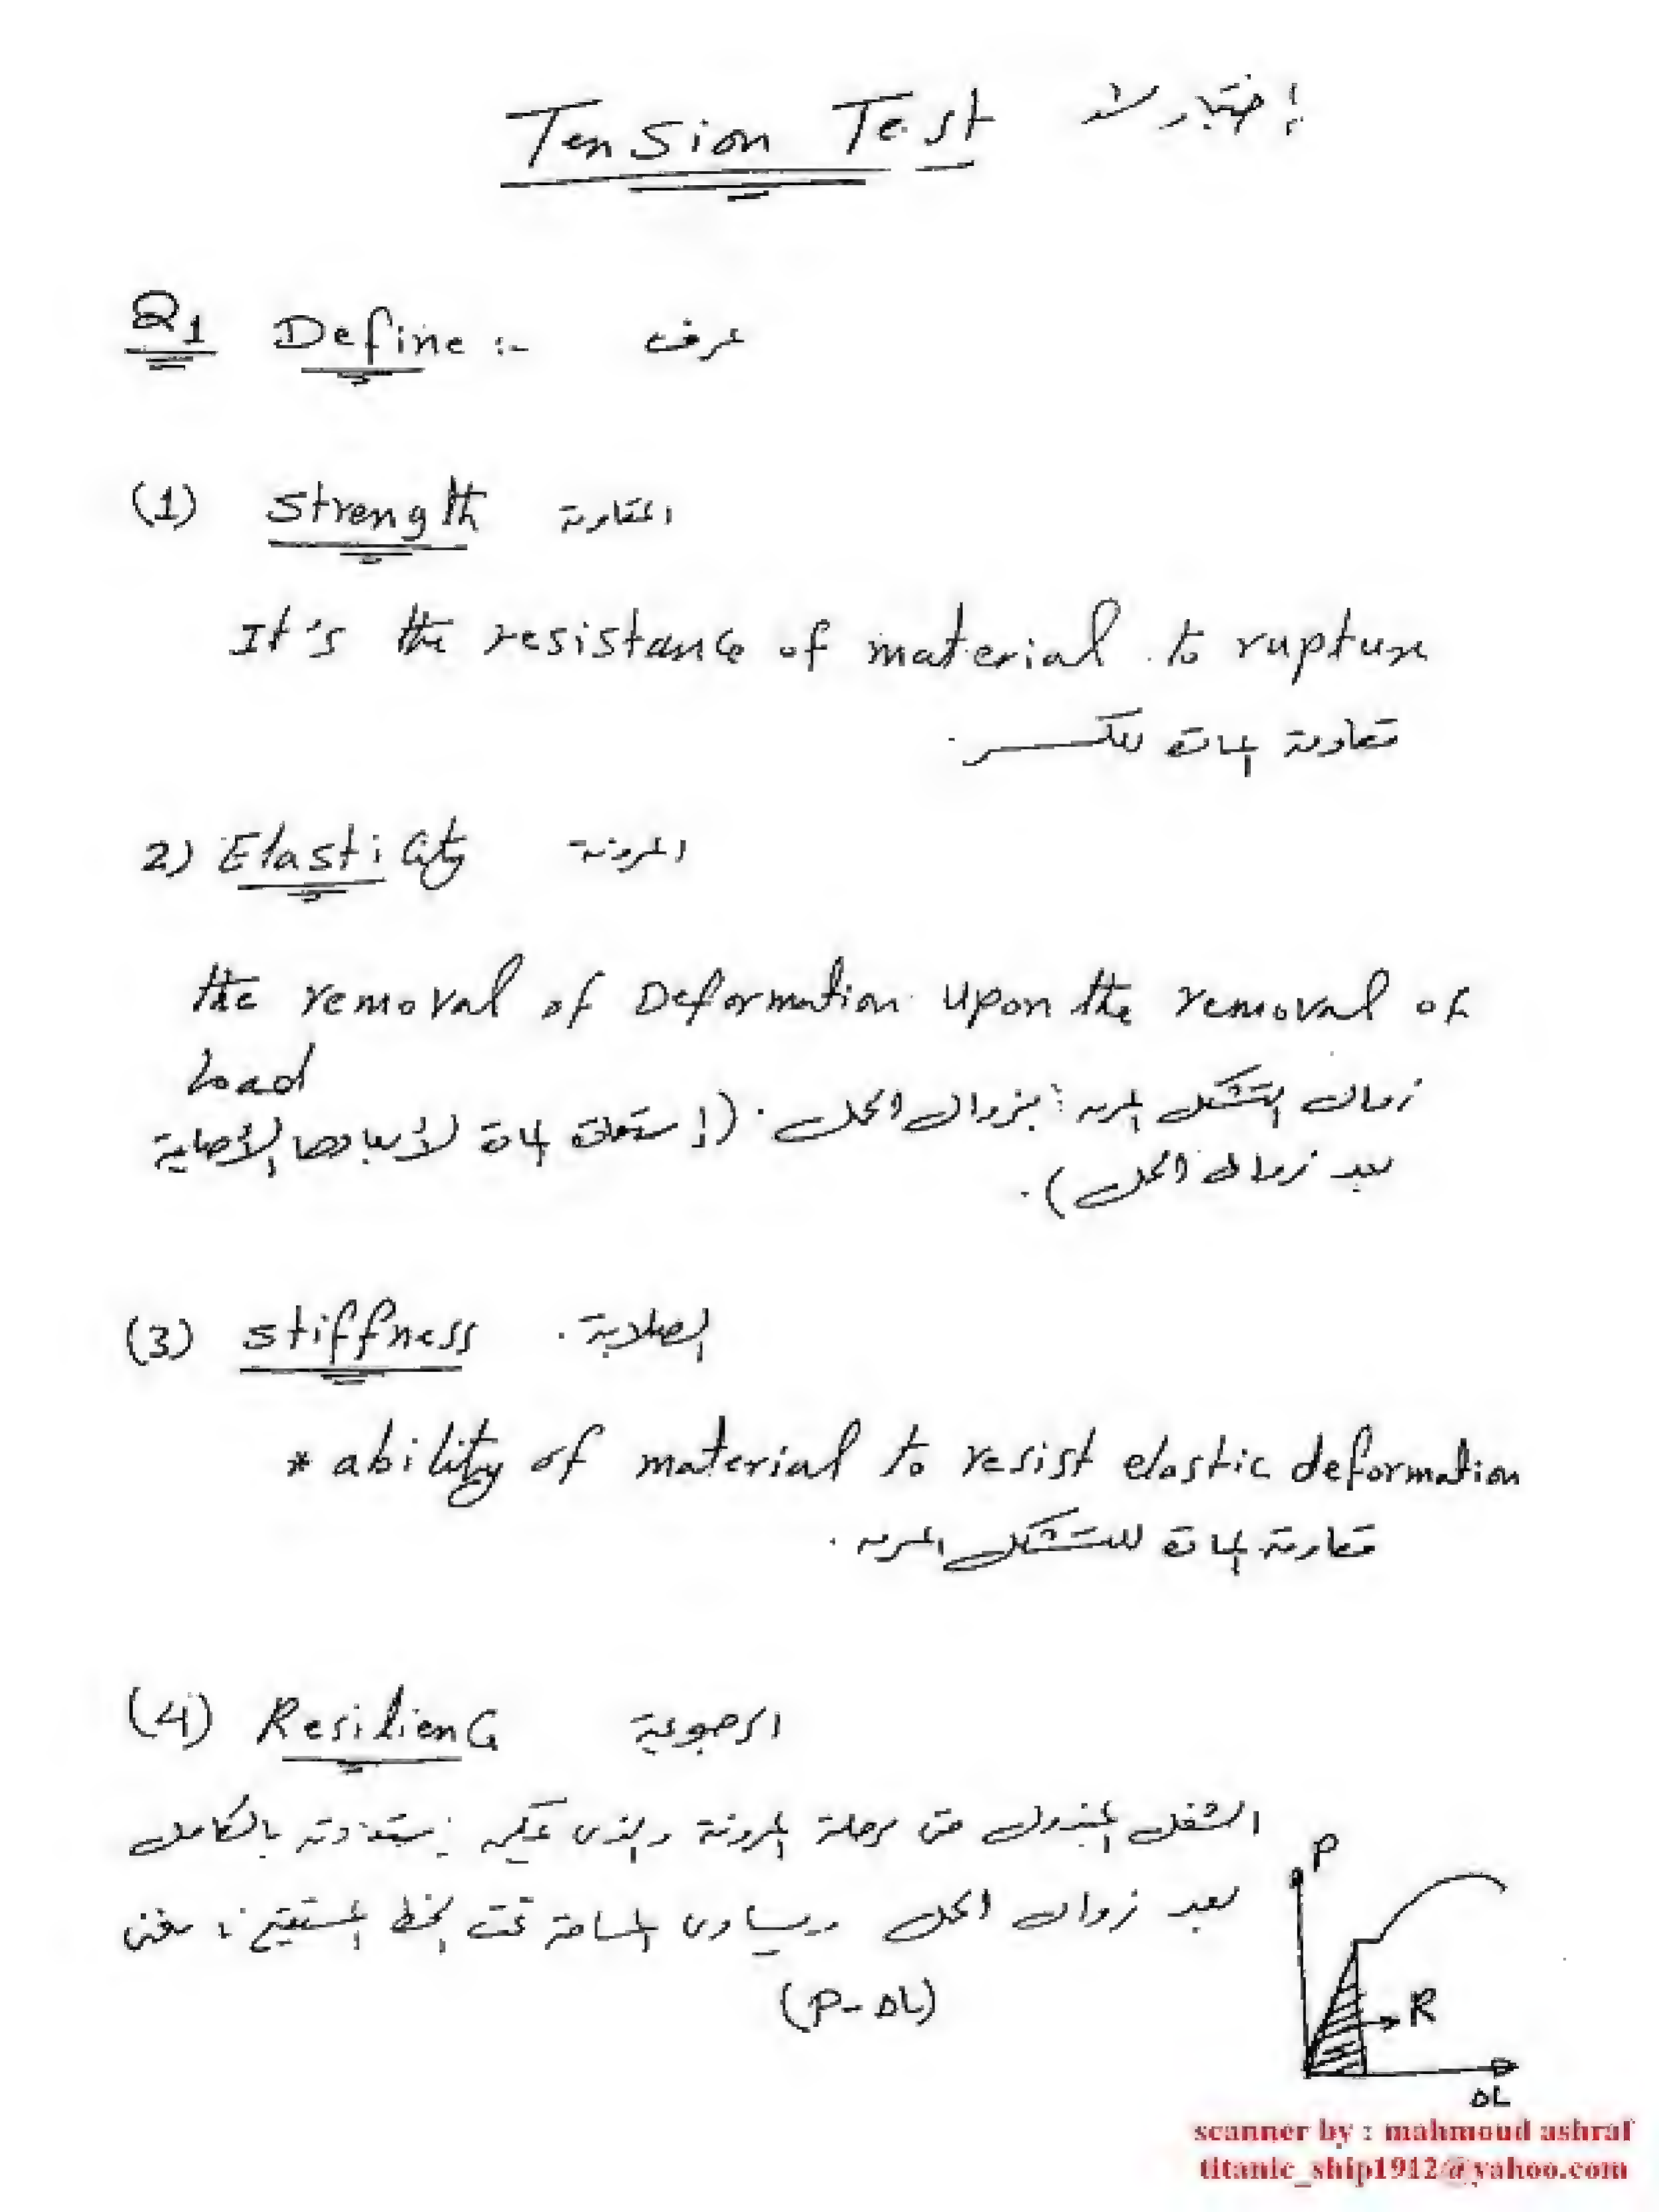 Tension Test إختبار الشد
Q1 Define :- عرف
(1) Strength المقاومة
It's the resistance of material to rupture
مقاومة المادة للكسر.
2) Elasticity المرونة
the removal of Deformation upon the removal of
Load
زوال التشكل المرن بزوال الحمل. (إستعادة المادة لأبعادها الأصلية
بعد زوال الحمل).
(3) stiffness الصلابة.
* ability of material to resist elastic deformation
مقاومة المادة للتشكل المرن.
(4) Resilience الرجوعية
الشغل المبذول فى مرحلة المرونة والذى يمكن إستعادته بالكامل
بعد زوال الحمل ويساوى المساحة تحت الخط المستقيم فى منحنى
(P-ΔL)
P
R
ΔL
scanner by : mahmoud ashraf
titanic_ship1912@yahoo.com